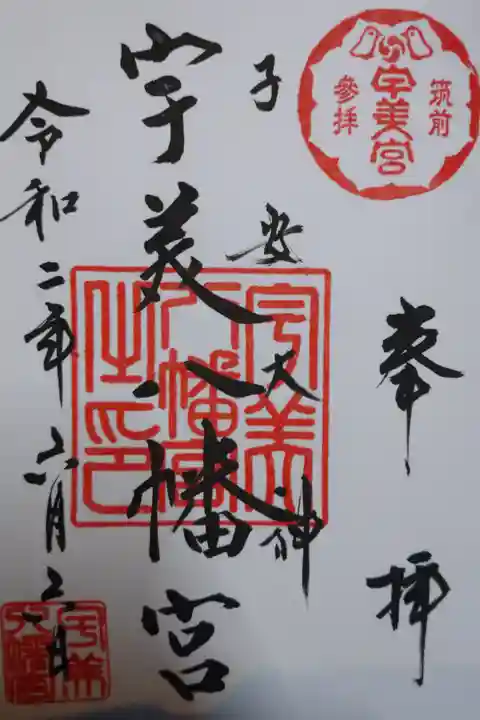 筑前
宇美宮
參拝
奉拝
子安大神
宇美八幡宮
宇美八幡宮之印
令和二年六月六日
宇美八幡宮